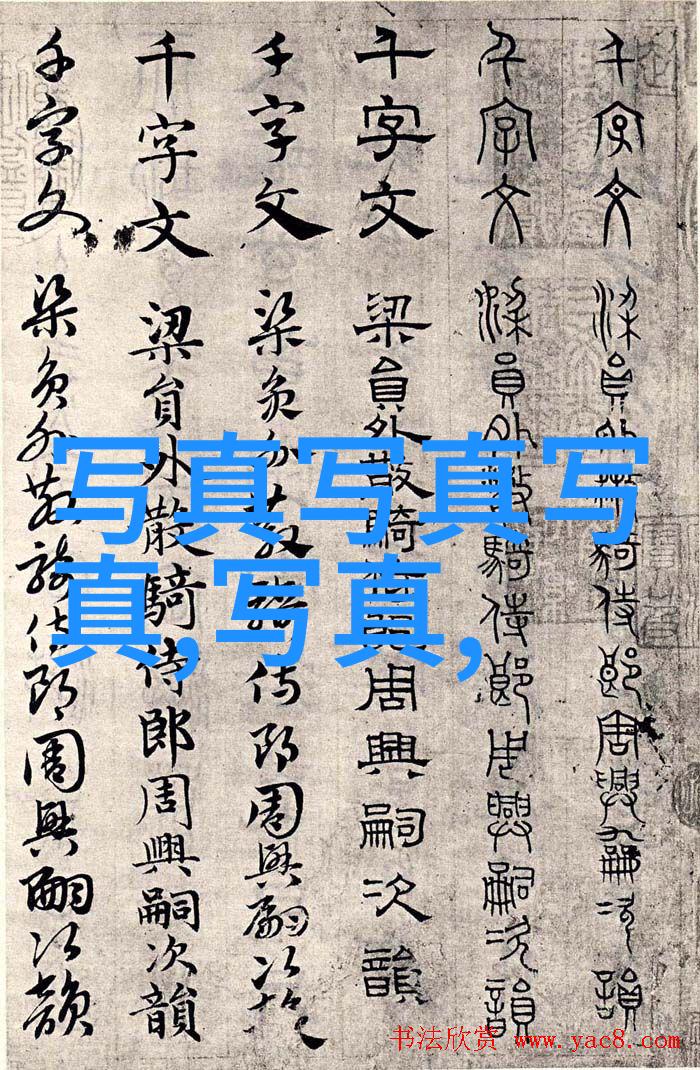 千字文 梁員外散騎侍郎周興嗣次韻
千字文 梁員外散騎侍郎周興嗣次韻
千字文 梁員外散騎侍郎周興嗣次韻
千字文 梁員外散騎侍郎周興嗣次韻
千字文 梁員外散騎侍郎周興嗣次韻
千字文 梁員外散騎侍郎周興嗣次韻
写真写真写
真,写真,
书法欣赏 www.yac8.com